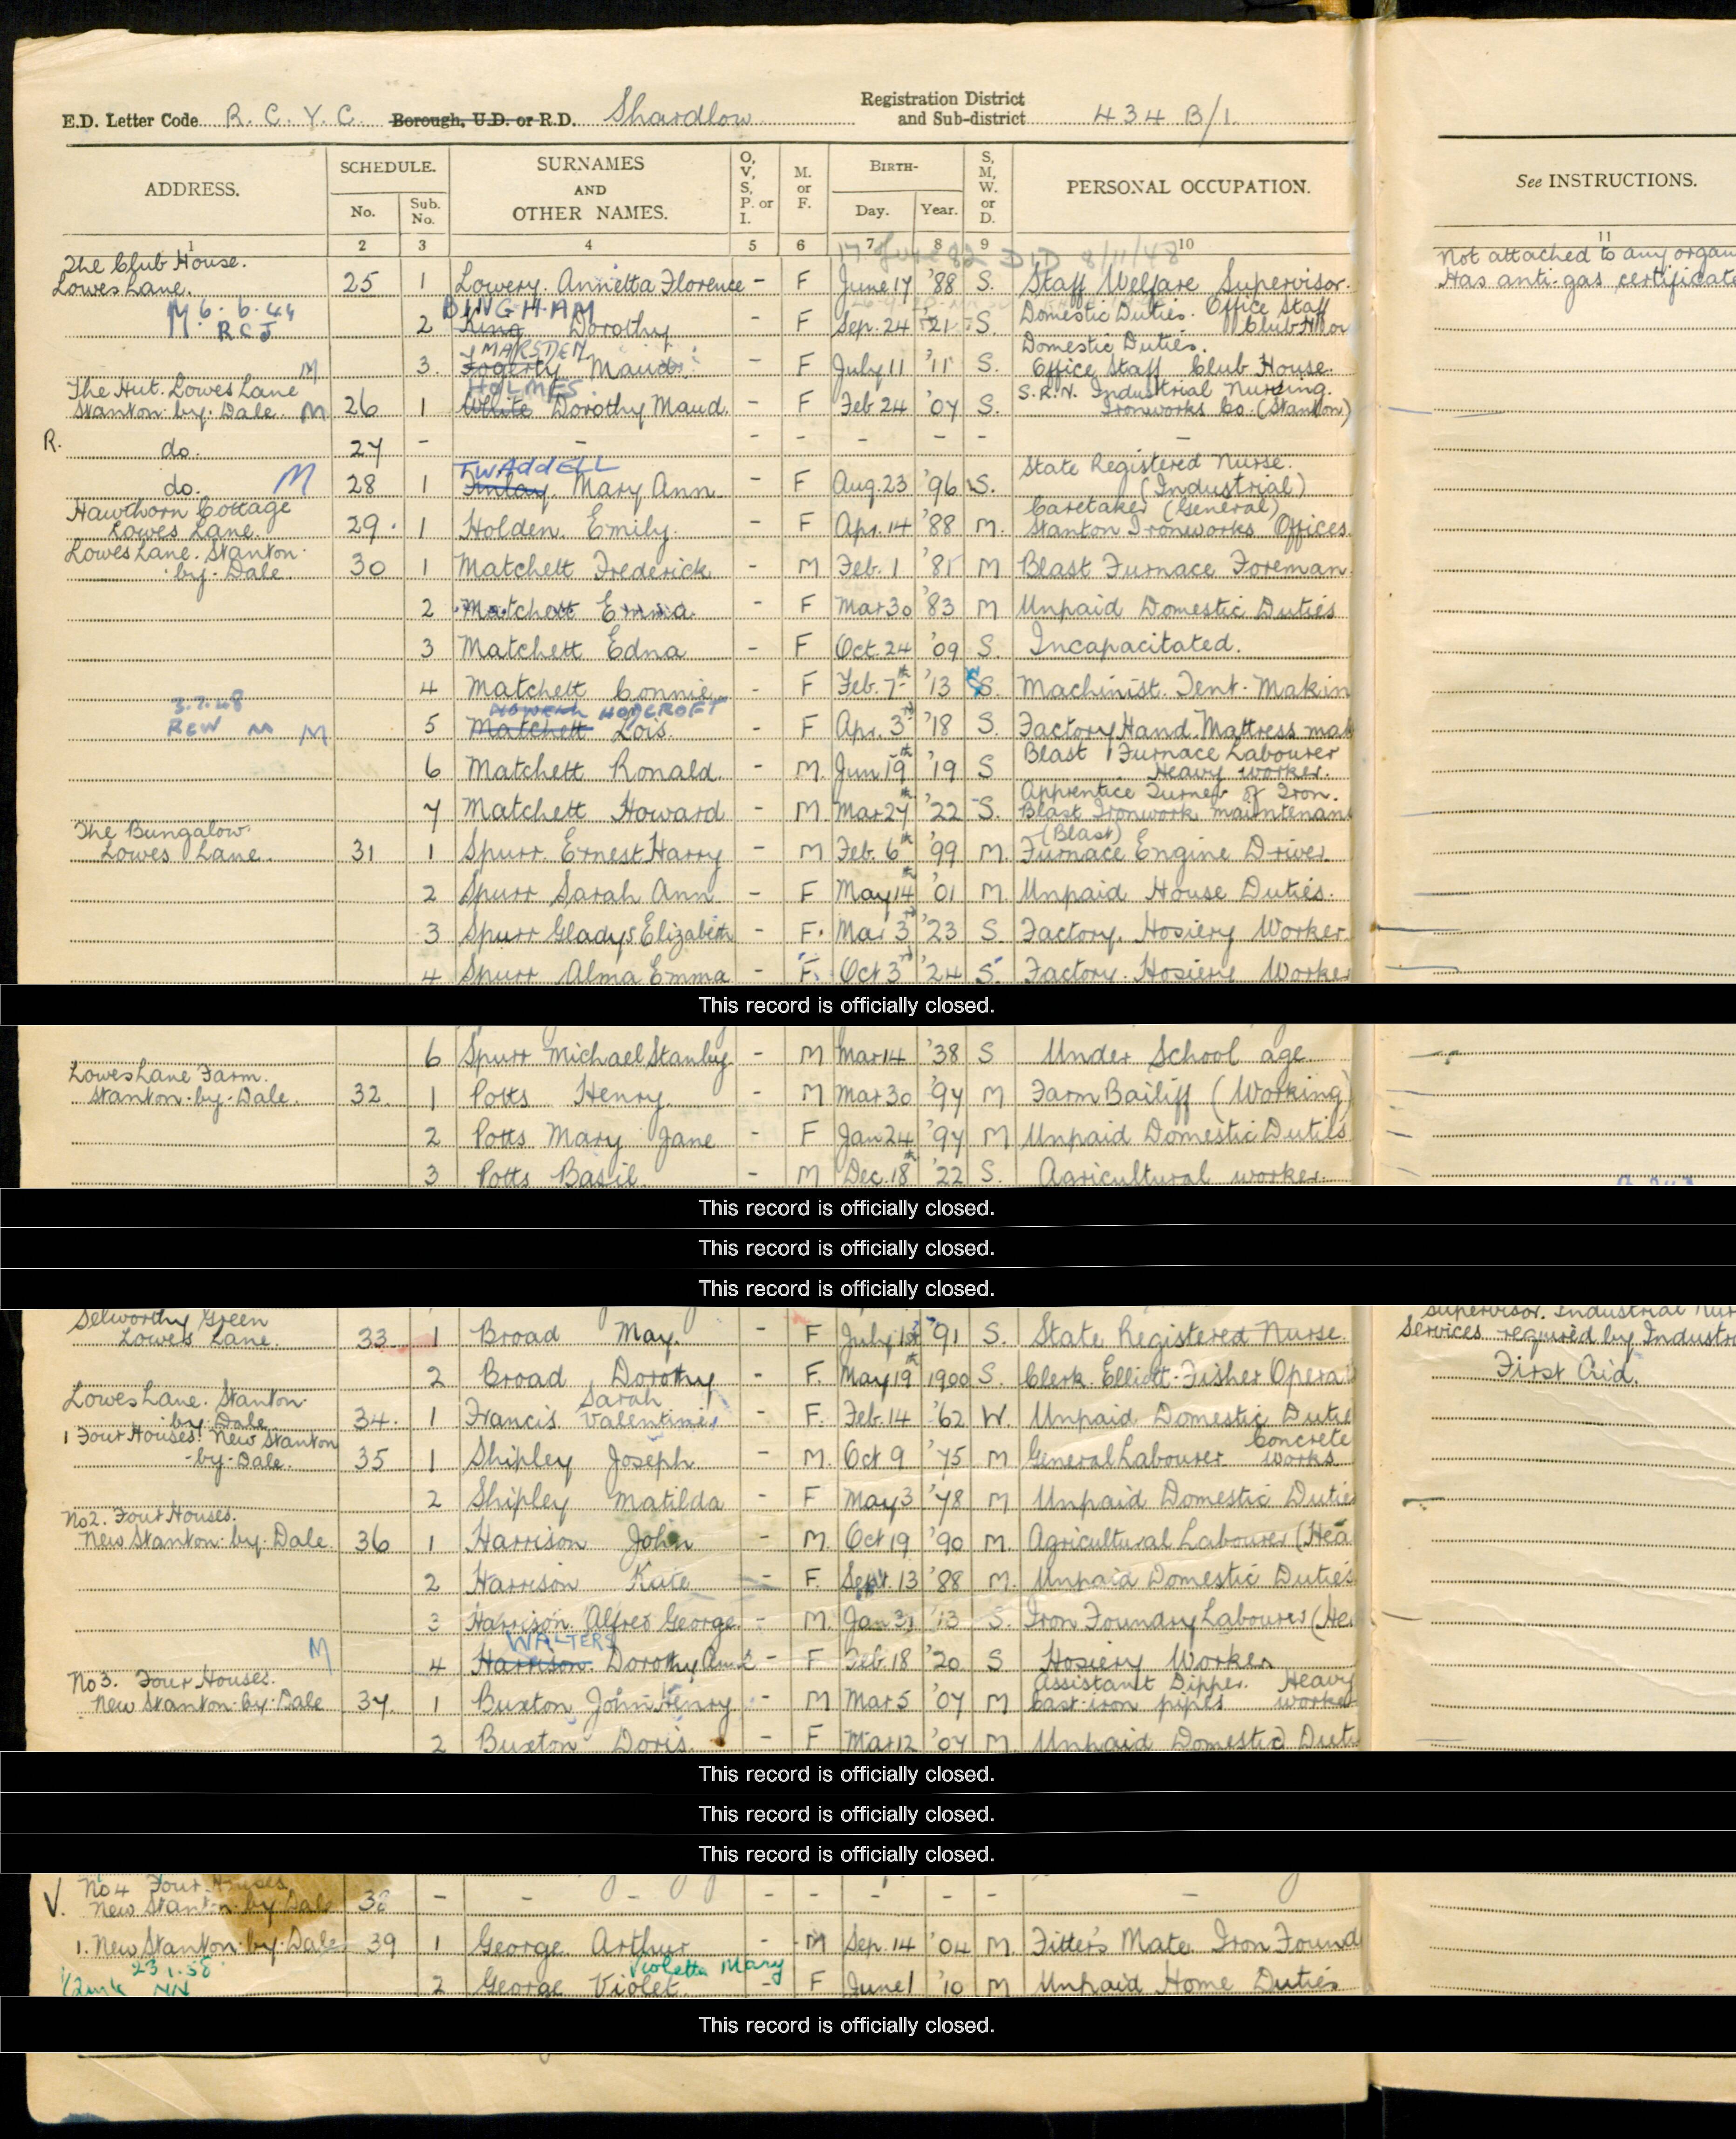 E.D. Letter Code R. C. Y. C. Borough, U.D. or R.D. Shardlow Registration District and Sub-district 434 B/1.
ADDRESS. SCHEDULE. No. Sub. No. SURNAMES AND OTHER NAMES. O, V, S, P. or I. M. or F. BIRTH- Day. Year. S, M, W. or D. PERSONAL OCCUPATION. See INSTRUCTIONS.
1 2 3 4 5 6 7 8 9 10 11
17 June 82 D.D 8/11/48
The Club House. Not attached to any organ
Lowes Lane. 25 1 Lowery Annetta Florence - F June 17 '88 S. Staff Welfare Supervisor. Has anti-gas certificate
M 6. 6. 44 BINGHAM Domestic Duties. Office Staff
RCJ 2 King Dorothy - F Sep. 24 '21 S. Club Ho
MARSDEN Domestic Duties.
M 3. Fogerty Maud - F July 11 '11 S. Office Staff Club House.
The Hut. Lowes Lane HOLMES S.R.N. Industrial Nursing.
Stanton-by-Dale. M 26 1 White Dorothy Maud - F Feb 24 '07 S. Ironworks Co. (Stanton)
R. do. 27 - - - - - - - -
TWADDELL State Registered Nurse.
do. M 28 1 Finlay Mary Ann - F Aug. 23 '96 S. (Industrial)
Hawthorn Cottage Caretaker (General)
Lowes Lane. 29. 1 Holden Emily. - F Apr. 14 '88 M. Stanton Ironworks Offices.
Lowes Lane. Stanton-
by-Dale. 30 1 Matchett Frederick - M Feb. 1 '81 M Blast Furnace Foreman
2 Matchett Emma. - F Mar 30 '83 M Unpaid Domestic Duties
3 Matchett Edna - F Oct. 24 '09 S. Incapacitated.
4 Matchett Connie - F Feb. 7th '13 S. Machinist. Tent-Makin
3.7.48 HOLCROFT
REW M M 5 Matchett Lois. - F Apr. 3rd '18 S. Factory Hand. Mattress mak
Blast Furnace Labourer
6 Matchett Ronald - M. Jun 19th '19 S Heavy worker.
Apprentice Turner of Iron.
7 Matchett Howard - M Mar 27th '22 S. Blast Ironwork maintenan
The Bungalow. (Blast)
Lowes Lane. 31 1 Spurr Ernest Harry - M Feb. 6th '99 M. Furnace Engine Driver.
2 Spurr Sarah Ann - F May 14th '01 M. Unpaid House Duties.
3 Spurr Gladys Elizabeth - F. Mar 3rd '23 S. Factory. Hosiery Worker.
4 Spurr Alma Emma - F. Oct 3rd '24 S. Factory. Hosiery Worker
This record is officially closed.
6 Spurr Michael Stanley - M Mar 14 '38 S Under School age
Lowes Lane Farm.
Stanton-by-Dale. 32. 1 Potts Henry. - M Mar 30 '97 M Farm Bailiff (Working)
2 Potts Mary Jane - F Jan 24 '97 M Unpaid Domestic Duties
3 Potts Basil. - M Dec. 18th '22 S. Agricultural worker.
This record is officially closed.
This record is officially closed.
This record is officially closed.
Selworthy Green Supervisor. Industrial Nur
Lowes Lane. 33. 1 Broad May. - F July 1st '91 S. State Registered Nurse. Services required by Industr
2 Broad Dorothy - F. May 19th 1900 S. Clerk. Elliott-Fisher Operat First Aid.
Lowes Lane. Stanton- Sarah
by-Dale 34. 1 Francis Valentine - F. Feb. 14 '62 W. Unpaid Domestic Dutie
1 Four Houses. New Stanton Concrete
-by-Dale. 35 1 Shipley Joseph - M. Oct 9 '75 M General Labourer works
2 Shipley Matilda - F May 3 '78 M Unpaid Domestic Dutie
No 2. Four Houses.
New Stanton-by-Dale 36 1 Harrison John - M. Oct 19 '90 M. Agricultural Labourer (Hea
2 Harrison Kate - F. Sept. 13 '88 M. Unpaid Domestic Duties
3 Harrison Alfred George. - M. Jan 31 '13 S. Iron Foundry Labourer (He
WALTERS
M 4 Harrison Dorothy Ann - F Feb. 18 '20 S Hosiery Worker
No 3. Four Houses. Assistant Dipper. Heavy
New Stanton-by-Dale 37. 1 Buxton John Henry - M Mar 5 '07 M Cast-iron pipes worker
2 Buxton Doris. - F Mar 12 '07 M. Unpaid Domestic Duti
This record is officially closed.
This record is officially closed.
This record is officially closed.
V. No 4 Four Houses
New Stanton-by-Dale 38 - - - - - - - -
1. New Stanton-by-Dale 39 1 George Arthur - M Sep. 14 '04 M. Fitter's Mate Iron Found
23.1.58 Violetta Mary
NN 2 George Violet. - F June 1 '10 M Unpaid Home Duties
This record is officially closed.